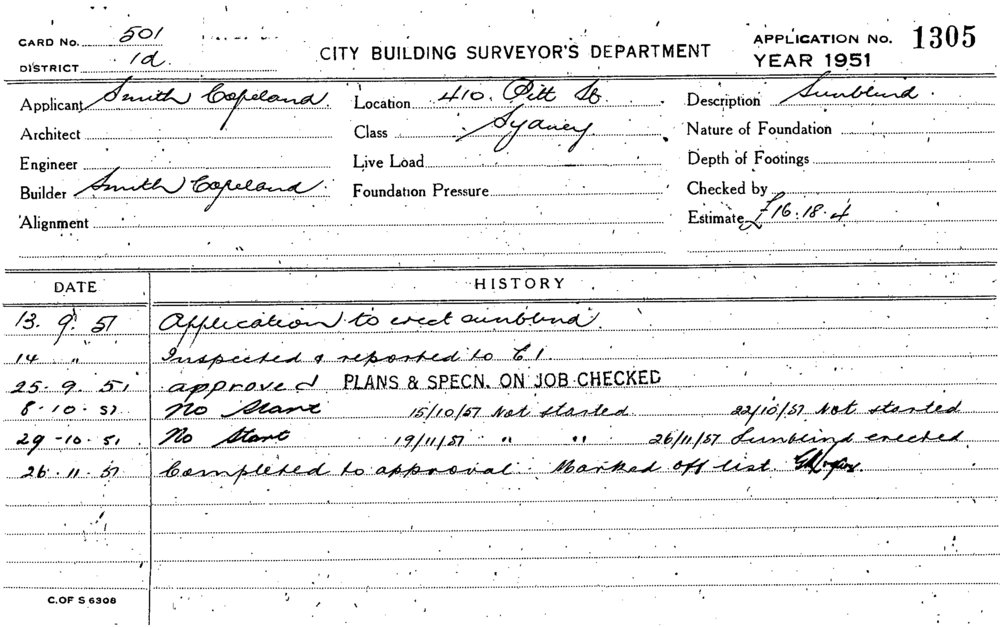 CARD No. 501
CITY BUILDING SURVEYOR'S DEPARTMENT
APPLICATION No. 1305
DISTRICT 1d.
YEAR 1951
Applicant Smith Copeland Location 410. Pitt St. Description Sunblind.
Architect Class Sydney Nature of Foundation
Engineer Live Load Depth of Footings
Builder Smith Copeland. Foundation Pressure Checked by
Alignment Estimate £16.18.4
DATE HISTORY
13. 9. 51 Application to erect sunblind.
14 " Inspected & reported to C1.
25. 9. 51 approved PLANS & SPECN. ON JOB CHECKED
8-10-51 No Start 15/10/51 Not started 22/10/51 Not started
29-10-51 No Start 19/11/51 " " 26/11/51 Sunblind erected
26.11.51 Completed to approval. Marked off list.
C.OF S 6308